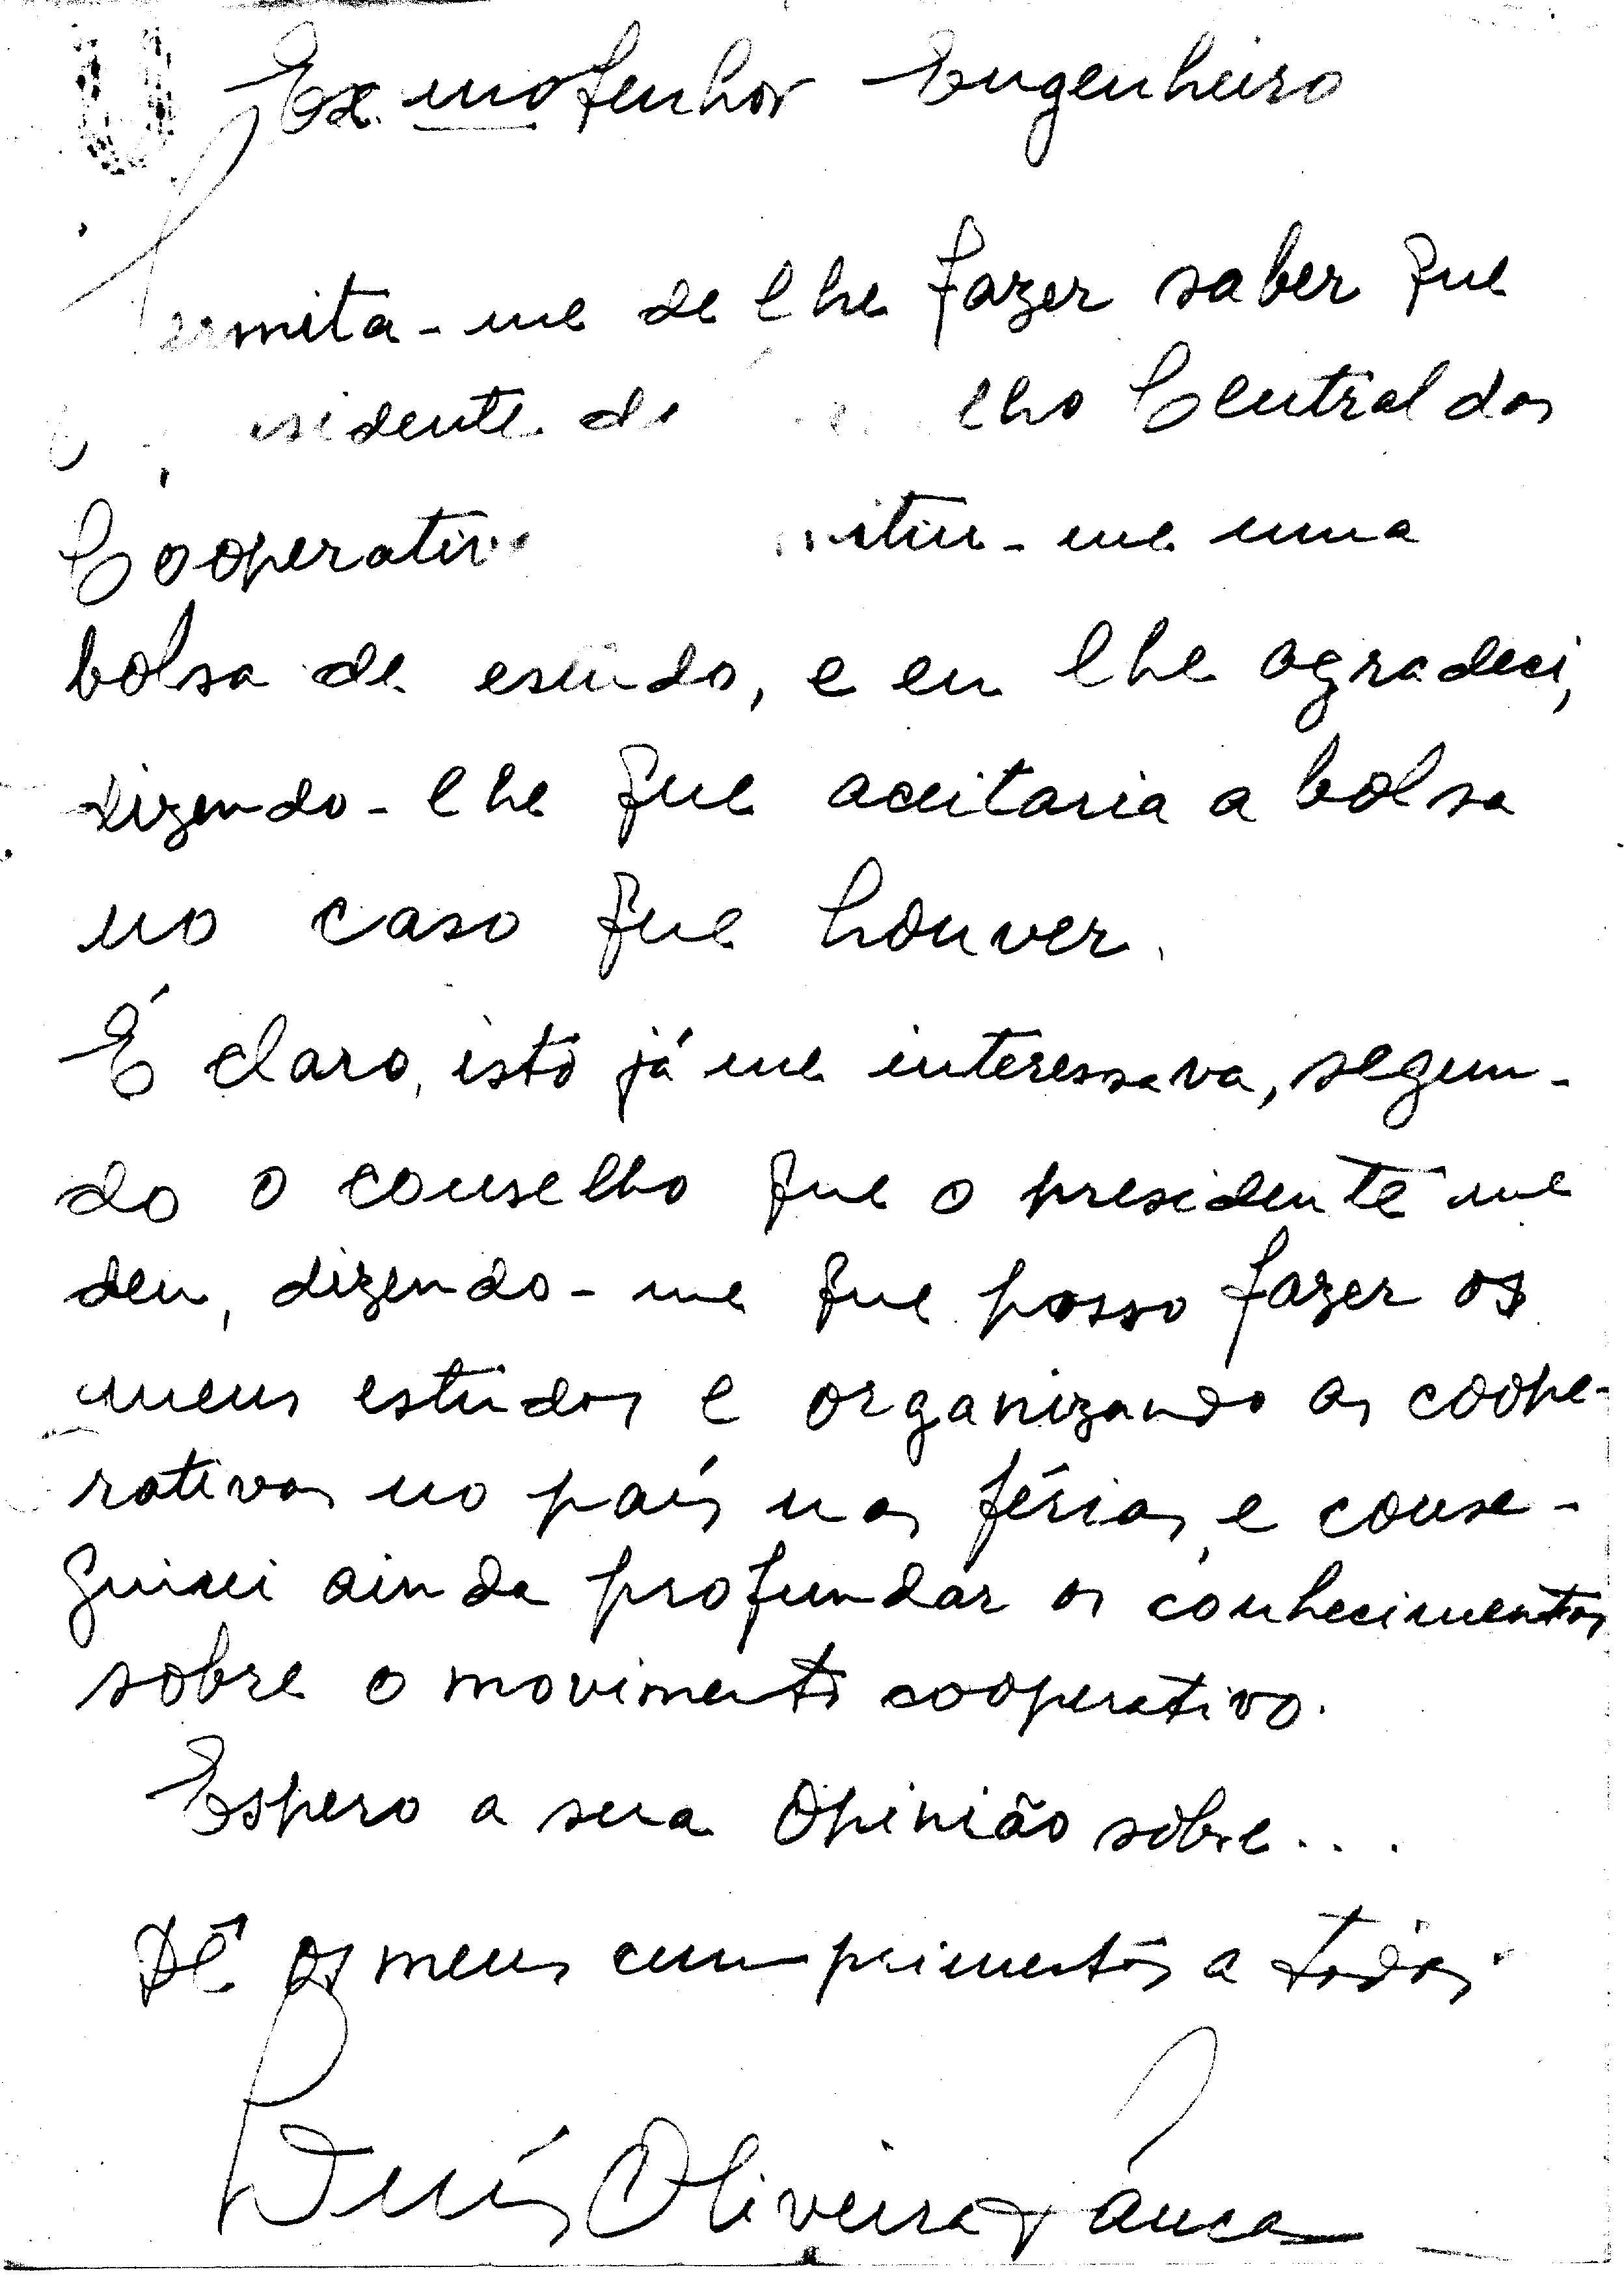 Exmo Senhor Engenheiro
Permita-me de lhe fazer saber que
sidente do lho Central das
Cooperativ itiu-me uma
bolsa de estudo, e eu lhe agradeci,
dizendo-lhe que aceitaria a bolsa
no caso que houver.
É claro, isto já me interessava, segun-
do o conselho que o presidente me
deu, dizendo-me que posso fazer os
meus estudos e organizando as coope-
rativas no país nas férias, e conse-
guirei ainda profundar os conhecimentos
sobre o movimento cooperativo.
Espero a sua opinião sobre...
Dê os meus cumprimentos a todos
Luís Oliveira Sanca